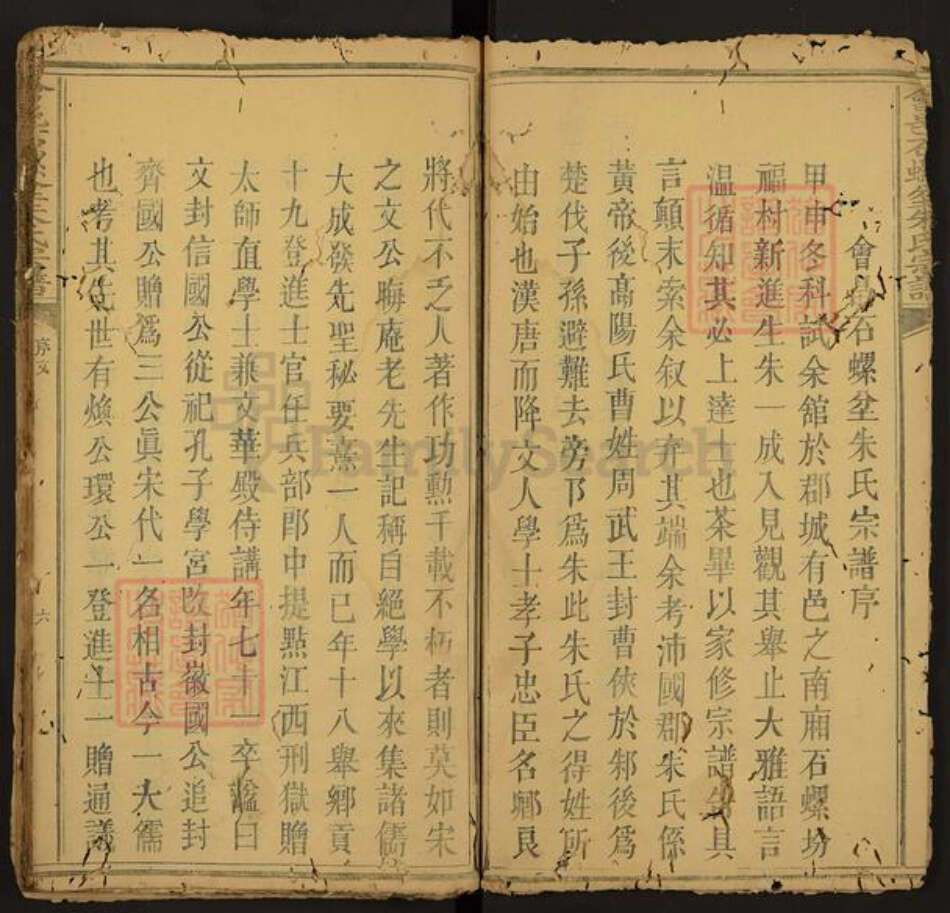 會邑石螺坌朱氏宗譜序
甲申冬科試余舘於郡城有邑之南廂石螺坋
福村新進生朱一成入見觀其舉止大雅語言
温循知其必上達士也茶畢以家修宗譜為具
言顛末索余叙以弁其端余考沛國郡朱氏係
黃帝後高陽氏曹姓周武王封曹俠於邾後爲
楚伐子孫避難去旁卩爲朱此朱氏之得姓所
由始也漢唐而降文人學士孝子忠臣名鄉良
將代不乏人著作功勲千載不朽者則莫如宋
之文公晦庵老先生記稱自絕學以來集諸儒
大成發先聖秘要熹一人而已年十八舉鄉貢
十九登進士官任兵部郎中提點江西刑獄贈
太師直學士兼文華殿侍講年七十一卒謚曰
文封信國公從祀孔子學宮改封徽國公追封
齊國公贈爲三公眞宋代一名相古今一大儒
也考其先世有煥公環公一登進士一贈通議
六
FamilySearch